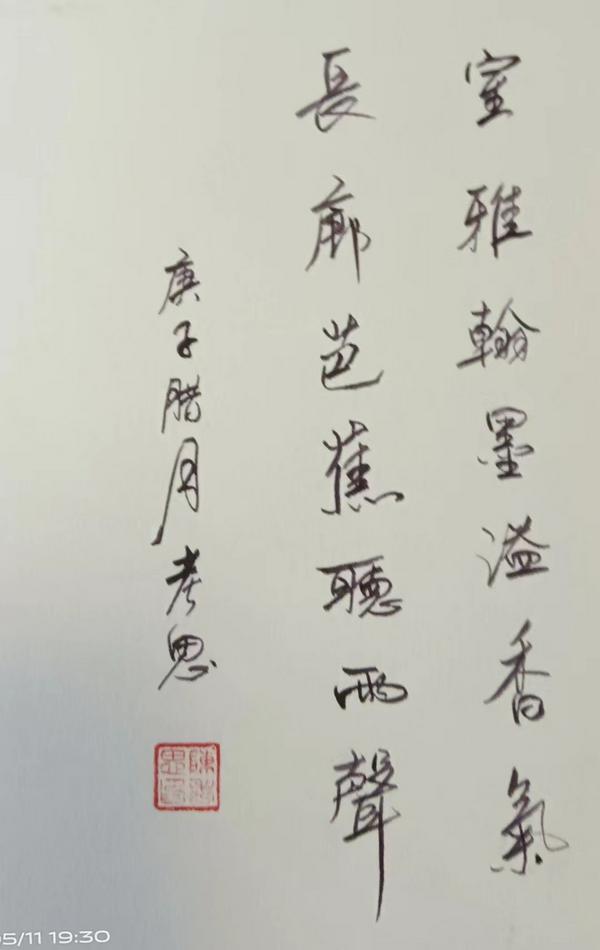 室雅翰墨溢香氣
長廊芭蕉聽雨聲
庚子腊月孝思
05/11 19:30